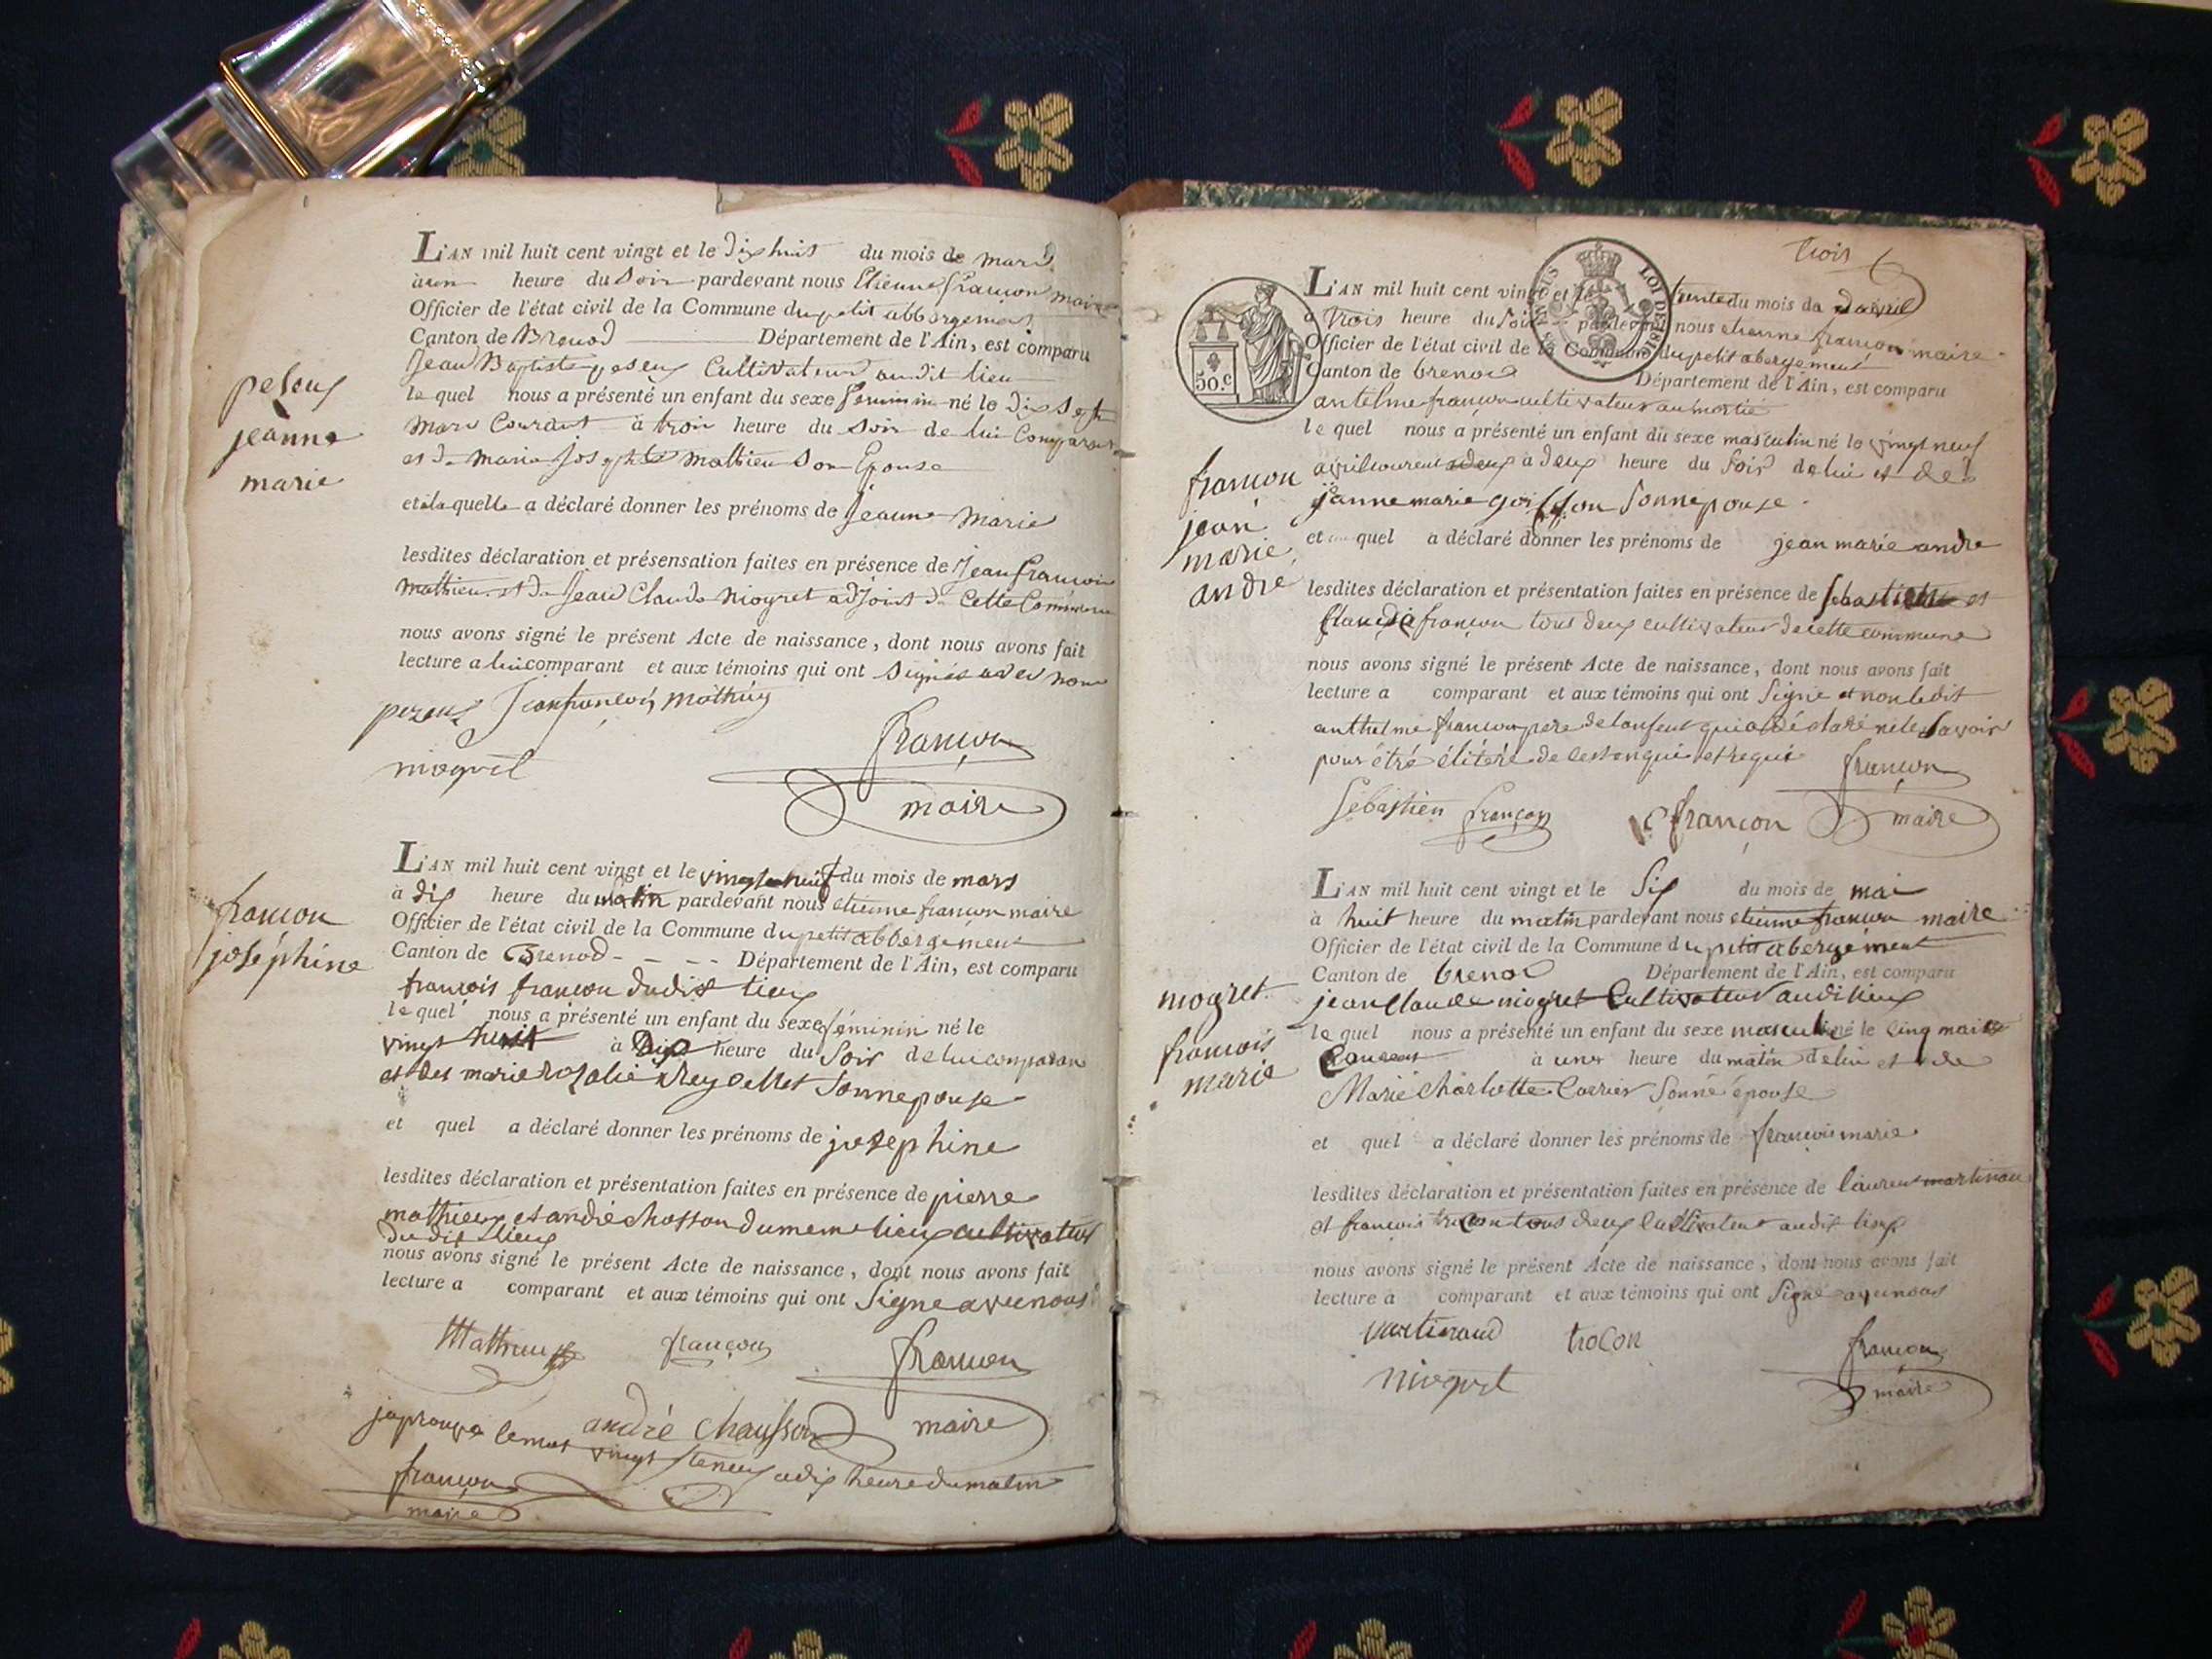 L'AN mil huit cent vingt et le dix huit du mois de mars
à un heure du soir pardevant nous Etienne françon maire
Officier de l'état civil de la Commune du petit abbergement
Canton de Brenod Département de l'Ain, est comparu
Jean Baptiste peseux Cultivateur audit lieu
le quel nous a présenté un enfant du sexe feminin né le dix sept
mars Courant à trois heure du soir de lui Comparant
et de marie josephte mathieu son Epouse
peseux
jeanne
marie
et a la quelle a déclaré donner les prénoms de Jeanne Marie
lesdites déclaration et présensation faites en présence de Jean françois
mathieu et de Jean Claude niogret adjoint de Cette Commune
nous avons signé le présent Acte de naissance, dont nous avons fait
lecture a lui comparant et aux témoins qui ont signés avec nous
pezeux Jean françois mathieu
françon
niogret
maire
L'AN mil huit cent vingt et le vingt neuf du mois de mars
à dix heure du matin pardevant nous etienne françon maire
Officier de l'état civil de la Commune du petit abbergement
Canton de Brenod - - - - Département de l'Ain, est comparu
françois françon dudit lieux
le quel nous a présenté un enfant du sexe féminin né le
vingt huit à Dix heure du soir de lui comparan
et des marie rosalie sonnepouse
françon
joséphine
et quel a déclaré donner les prénoms de josephine
lesdites déclaration et présentation faites en présence de pierre
mathieux et andré chosson du meme lieux cultivateur
dudit lieux
nous avons signé le présent Acte de naissance, dont nous avons fait
lecture a comparant et aux témoins qui ont signe avec nous
Mathieux françon françon
andré chausson maire
japrouve le mot vingt neuf a dix heure du matin
françon
maire
trois
50.c
LOI DE 1816
L'AN mil huit cent vingt et le trente du mois da davril
à trois heure du soir pardevant nous etienne françon maire
Officier de l'état civil de la Commune du petit abergement
Canton de brenod Département de l'Ain, est comparu
antelme françon cultivateur au
le quel nous a présenté un enfant du sexe masculin né le vingt neuf
avril courent a deux heure du soir de lui et de
janne marie sonnepouse
françon
jean
marie
andre
et quel a déclaré donner les prénoms de jean marie andre
lesdites déclaration et présentation faites en présence de sebastien et
Claude françon tous deux cultivateur de cette commune
nous avons signé le présent Acte de naissance, dont nous avons fait
lecture a comparant et aux témoins qui ont signe et non ledit
anthelme françon pere de lanfent qui a déclaré ne le savoir
pour étré élitéré de ce enquis et requis
françon
Sébastien françon C françon maire
L'AN mil huit cent vingt et le Six du mois de mai
à huit heure du matin pardevant nous etienne françon maire
Officier de l'état civil de la Commune du petit abergement
Canton de brenod Département de l'Ain, est comparu
jean Claude niogret Cultivateur audit lieux
le quel nous a présenté un enfant du sexe masculin né le cinq mai
Courant à une heure du matin de lui et de
Marie Charlotte Carrier sonné épouse
niogret
francois
marie
et quel a déclaré donner les prénoms de francois marie
lesdites déclaration et présentation faites en présence de laurent martinand
et françois trocon tous deux Cultivateur audit lieux
nous avons signé le présent Acte de naissance, dont nous avons fait
lecture à comparant et aux témoins qui ont signé avec nous
martinand trocon françon
niogret maire